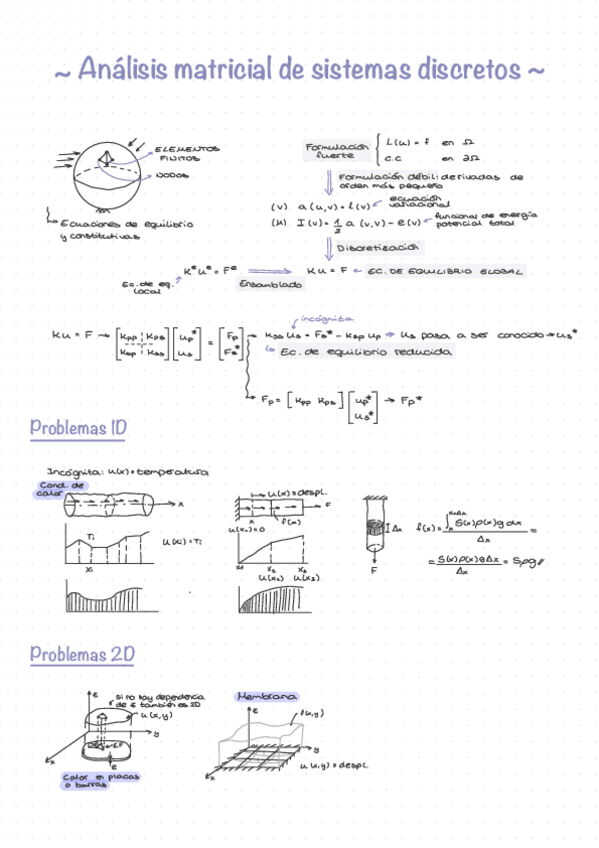 ~ Análisis matricial de sistemas discretos ~
ELEMENTOS
FINITOS
NODOS
Ecuaciones de equilibrio
y constitutivas
Formulación
fuerte
L(u) = f en Ω
C.C en ∂Ω
Formulación débil: derivadas de
orden más pequeño
(V) a(u,v) = l(v) ← ecuación
variacional
(M) I(v) = 1/2 a(v,v) - e(v) ← funcional de energía
potencial total
Discretización
Ec. de eq.
local
Kᵉuᵉ = Fᵉ ⇒ Ku = F ← EC. DE EQUILIBRIO GLOBAL
Ensamblado
incógnita
Ku = F → [Kpp Kps; Ksp Kss] [up*; us] = [Fp; Fs*] → Kss us = Fs* - Ksp up → us pasa a ser conocido → us*
Ec. de equilibrio reducida
Fp = [Kpp Kps] [up*; us*] → Fp*
Problemas 1D
Incógnita: u(x) = temperatura
Cond. de
calor
x
Ti
u(xi) = Ti
xi
u(x) = despl.
F
x
f(x)
u(x₀) = 0
x₀ x₁ x₂
u(x₁) u(x₂)
Δx
F
f(x) = ∫ₓˣ⁺Δˣ S(x)ρ(x)g dx / Δx =
= S(x)ρ(x)gΔx / Δx = Sρg
Problemas 2D
si no hay dependencia
de z también es 2D
u(x,y)
z
y
x
e
Calor en placas
o barras
Membrana
z
f(x,y)
y
x
u(x,y) = despl.